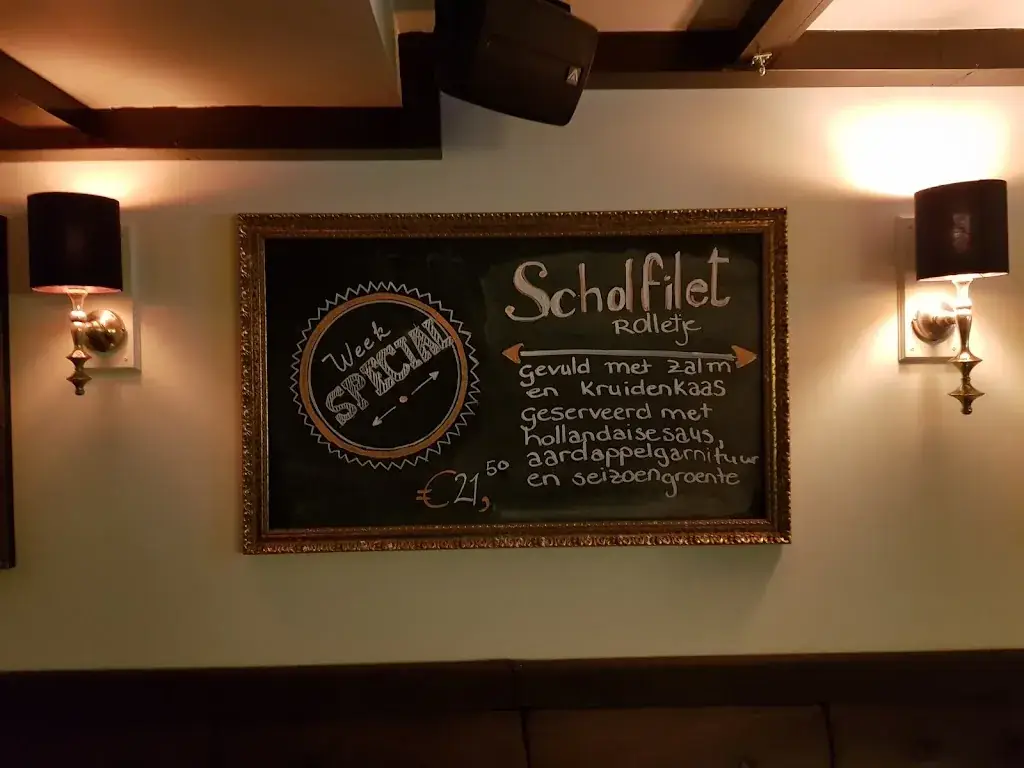 Week
SPECIAL
€21,50
Scholfilet
Rolletje
gevuld met zalm
en kruidenkaas
geserveerd met
hollandaisesaus,
aardappelgarnituur
en seizoengroente